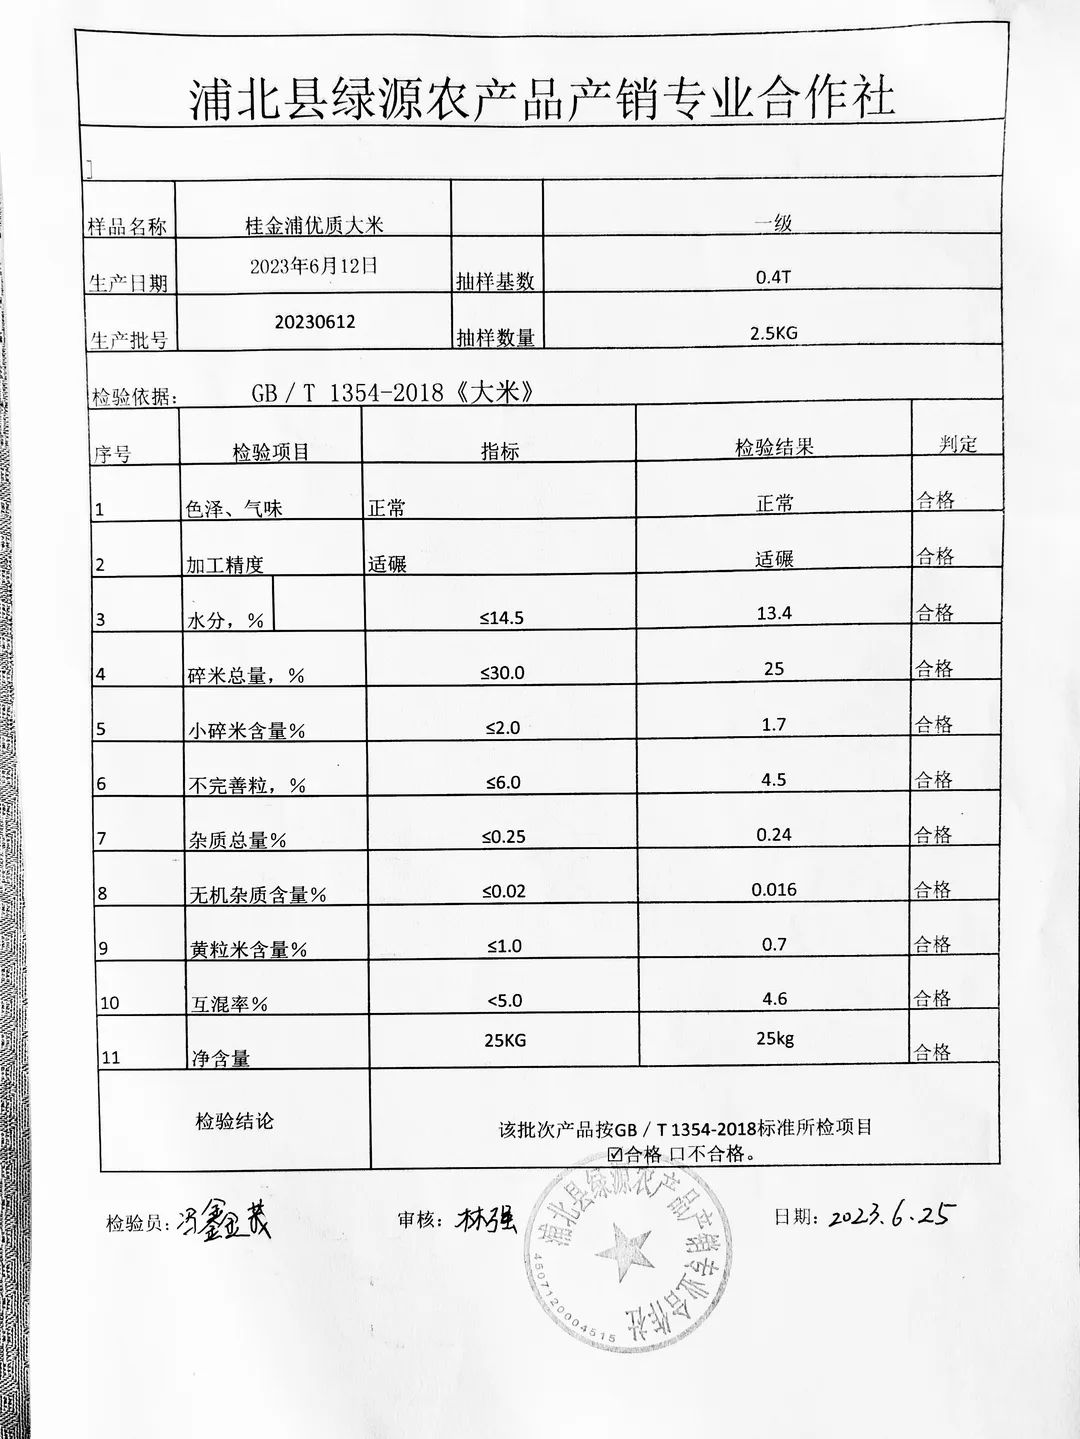 浦北县绿源农产品产销专业合作社
样品名称 桂金浦优质大米 一级
生产日期 2023年6月12日 抽样基数 0.4T
生产批号 20230612 抽样数量 2.5KG
检验依据: GB/T 1354-2018《大米》
序号 检验项目 指标 检验结果 判定
1 色泽、气味 正常 正常 合格
2 加工精度 适碾 适碾 合格
3 水分，% ≤14.5 13.4 合格
4 碎米总量，% ≤30.0 25 合格
5 小碎米含量% ≤2.0 1.7 合格
6 不完善粒，% ≤6.0 4.5 合格
7 杂质总量% ≤0.25 0.24 合格
8 无机杂质含量% ≤0.02 0.016 合格
9 黄粒米含量% ≤1.0 0.7 合格
10 互混率% <5.0 4.6 合格
11 净含量 25KG 25kg 合格
检验结论 该批次产品按GB/T 1354-2018标准所检项目
☑合格 口不合格。
检验员: 冯鑫 审核: 林强 日期: 2023.6.25
浦北县绿源农产品产销专业合作社
4507120004515